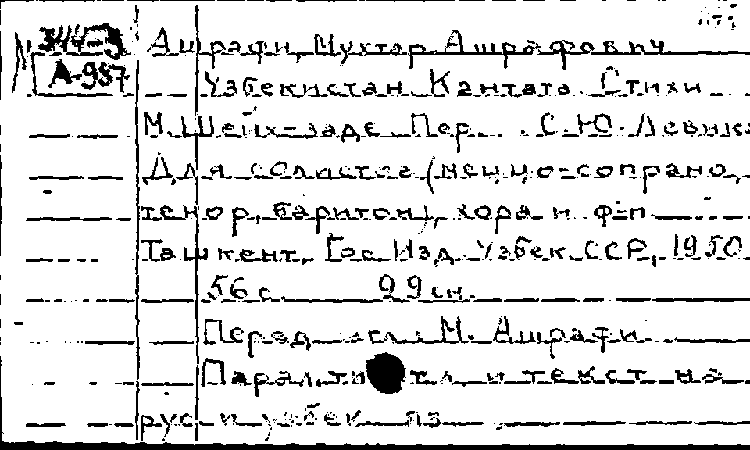 344-3 Ашрафи, Мухтар Ашрафович
А-987 Узбекистан Кантата Стихи
М. Шейх-заде Пер. С. Ю. Левика
Для солистов (меццо-сопрано,
тенор, баритон), хора и ф-п
Ташкент, Гос Изд Узбек ССР, 1950
56 с. 22 см.
Перед загл: М. Ашрафи
Паралл. тит л. и текст на
рус и узбек яз